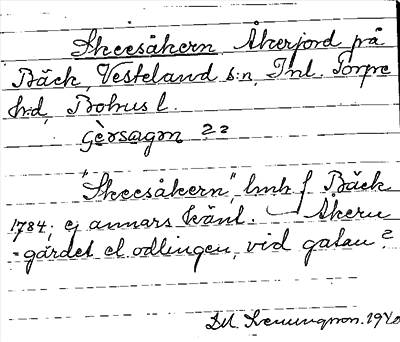 Skeesåkern Åkerjord på
Bäck, Vesteland s:n, Inl. Torpe
h:d, Bohus l.
gèrsagan ??
"Skeesåkern", lmk f Bäck
1784; ej annars känt. – Åkern
-gärdet el. odlingen, vid gatan?
1940